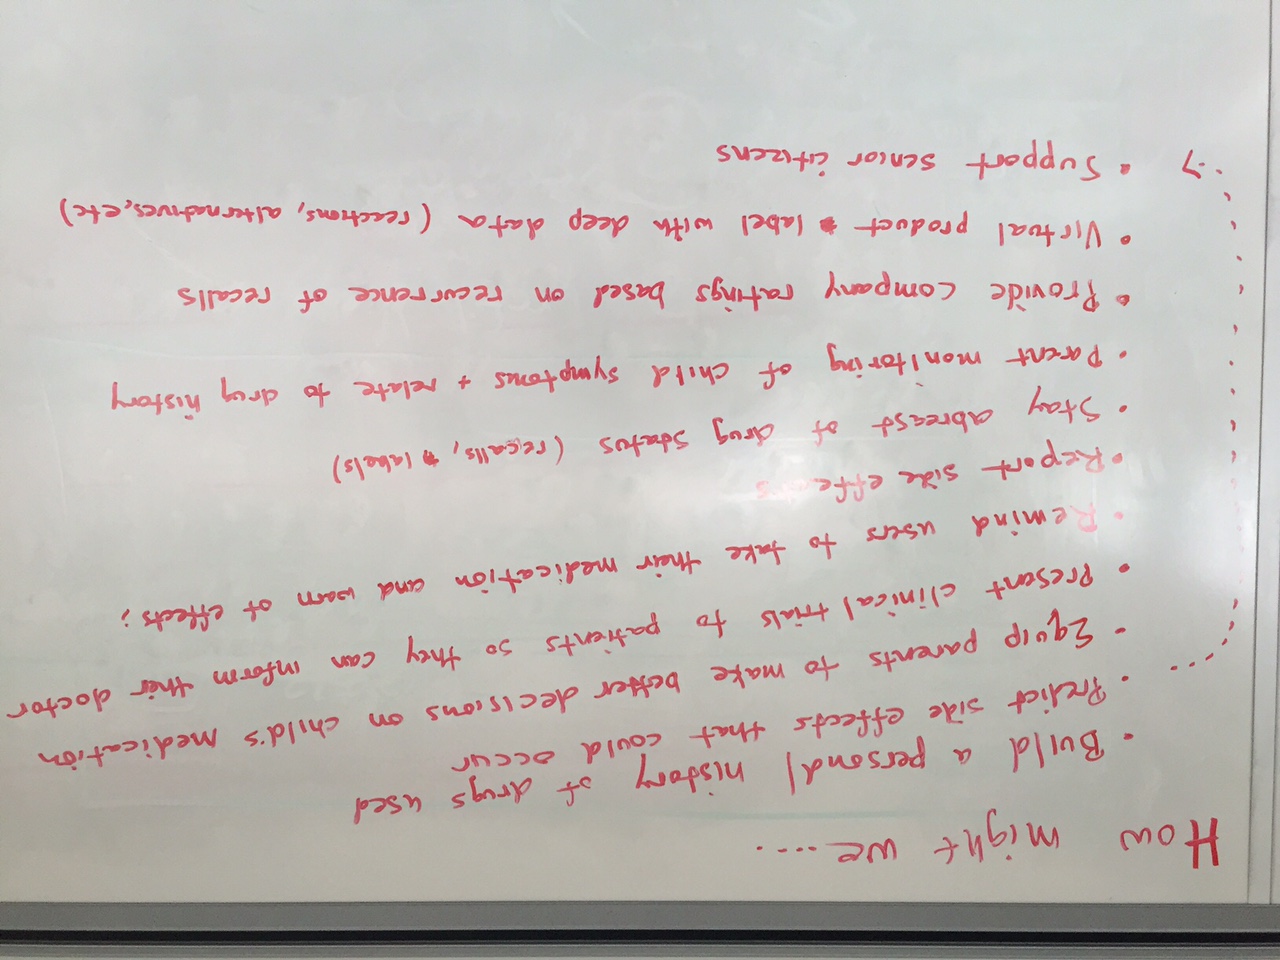 How might we....
• Build a personal history of drugs used
• Predict side effects that could occur
• Equip parents to make better decisions on child's medication
• Present clinical trials to patients so they can inform their doctor
• Remind users to take their medication and warn of effects;
• Report side effects
• Stay abreast of drug status (recalls, labels)
• Parent monitoring of child symptoms + relate to drug history
• Provide company ratings based on recurrence of recalls
• Virtual product label with deep data (reactions, alternatives, etc)
• Support senior citizens